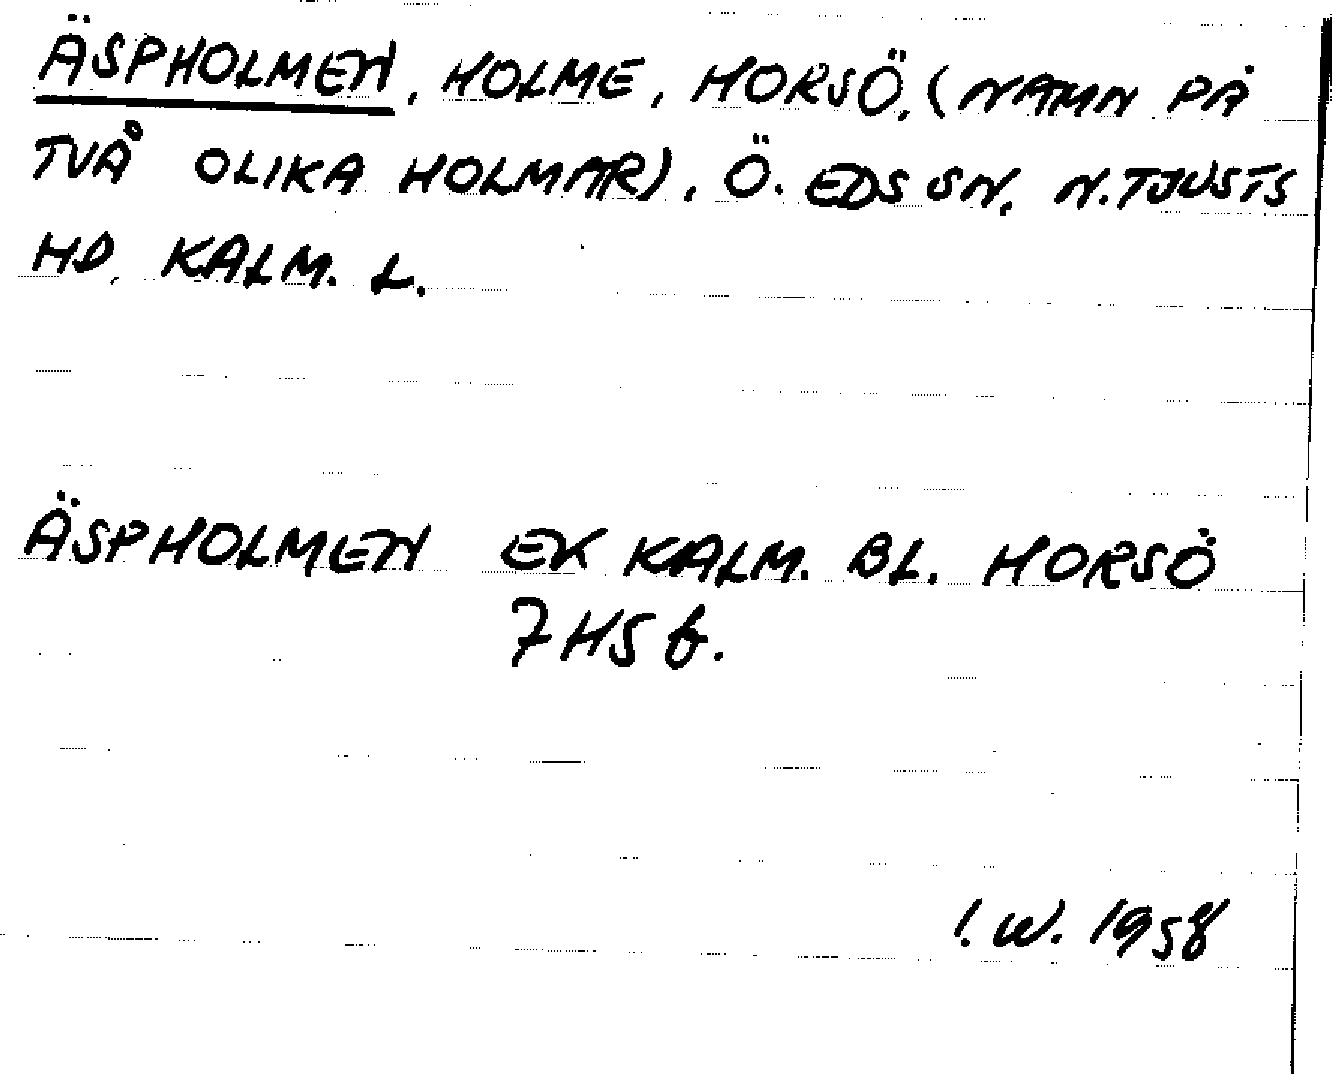 ÄSPHOLMEN, HOLME, HORSÖ, (NAMN PÅ
TVÅ OLIKA HOLMAR), Ö. EDS SN, N. TJUSTS
HD, KALM. L.
ÄSPHOLMEN EK KALM. BL. HORSÖ
7H5f.
I. W. 1958